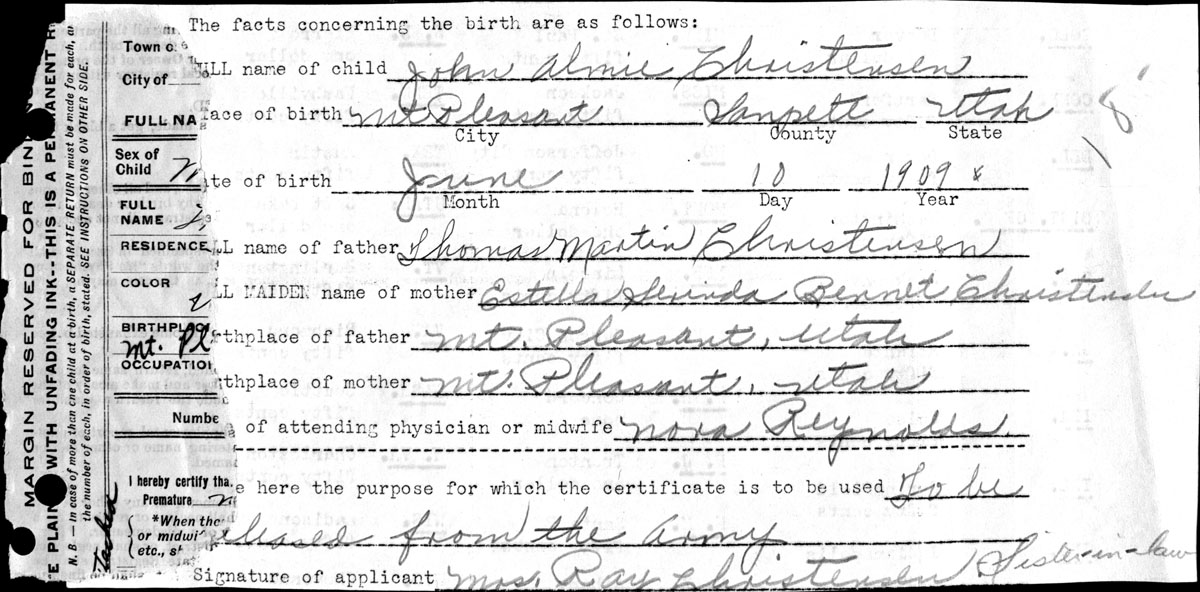 The facts concerning the birth are as follows:
Town o
City of
FULL NA
Sex of
Child
FULL
NAME
RESIDENCE
COLOR
BIRTHPL
Mt. Pl
OCCUPATION
Numbe
I hereby certify tha
Premature
*When the
or midwi
etc., s
MARGIN RESERVED FOR BIN
E PLAIN WITH UNFADING INK--THIS IS A PERMANENT R
N. B. — In case of more than one child at a birth, a SEPARATE RETURN must be made for each, a
the number of each, in order of birth, stated. SEE INSTRUCTIONS ON OTHER SIDE.
ULL name of child John Almie Christensen
lace of birth Mt Pleasant Sanpete Utah
City County State
ate of birth June 10 1909 x
Month Day Year
LL name of father Thomas Martin Christensen
LL MAIDEN name of mother Estella Bennet Christensen
rthplace of father Mt. Pleasant, Utah
thplace of mother Mt. Pleasant, Utah
of attending physician or midwife Nora Reynolds.
e here the purpose for which the certificate is to be used To be
eleased from the Army
Signature of applicant Mrs. Ray Christensen Sister-in-law